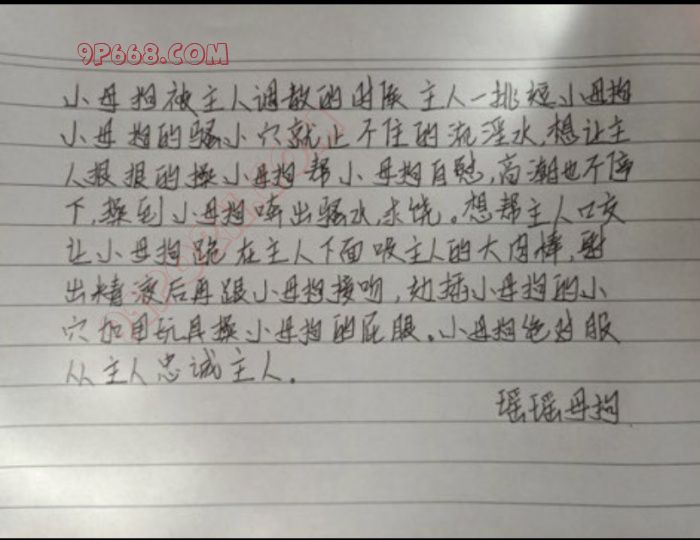 9P668.COM
小母狗被主人调教的时候 主人一挑逗小母狗
小母狗的骚小穴就止不住的流淫水,想让主
人狠狠的操小母狗帮小母狗自慰,高潮也不停
下,操到小母狗喷出骚水,求饶。想帮主人口交
让小母狗跪在主人下面吸主人的大肉棒,射
出精液后再跟小母狗接吻,边插小母狗的小
穴加用玩具操小母狗的屁眼。小母狗绝对服
从主人忠诚主人.
瑶瑶母狗